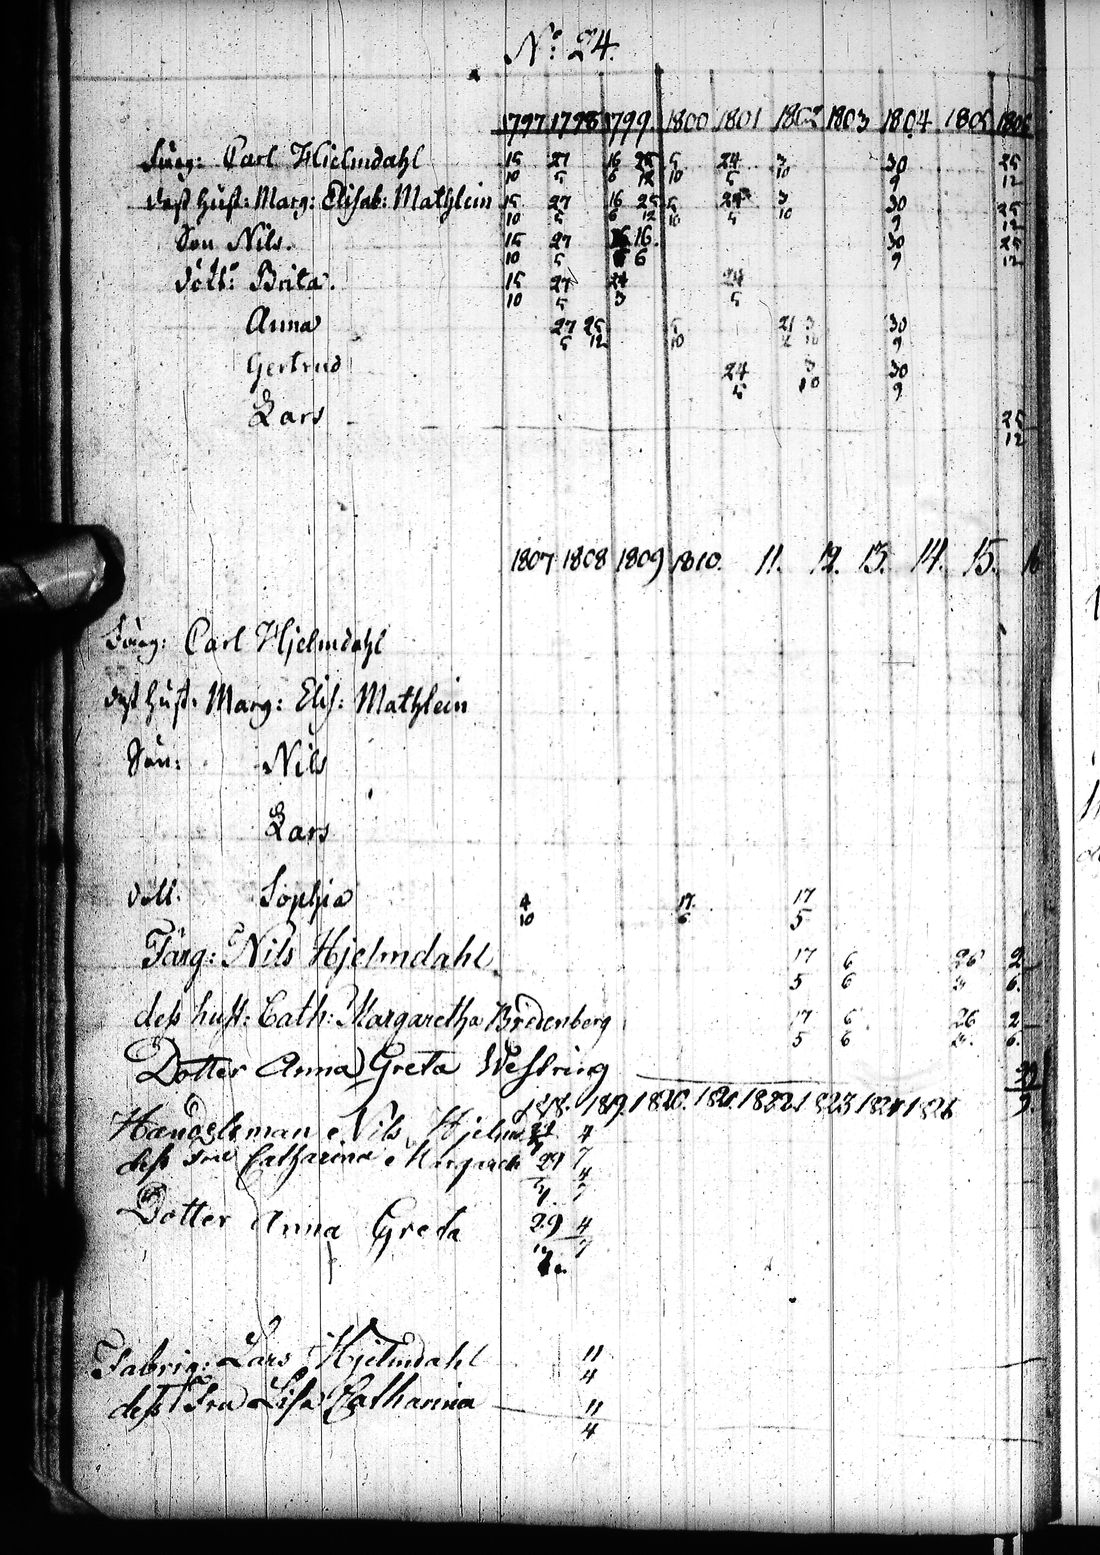 No: 24.
1797 1798 1799. 1800 1801 1802 1803 1804 1805 1806
Färg: Carl Hjelmdahl 15/10 27/5 16/6 25/12 5/10 24/5 3/10 30/9 25/12
dess hust: Marg: Elisab: Mathlein 15/10 27/5 16/6 25/12 5/10 24/5 3/10 30/9 25/12
Son Nils. 15/10 27/5 16/6 30/9 25/12
Dött: Brita. 15/10 27/5 24/3 24/5
Anna 27/5 25/12 5/10 21/2 3/10 30/9
Gertrud 24/5 3/10 30/9
Lars 25/12
1807 1808 1809 1810. 11. 12. 13. 14. 15. 16
Färg: Carl Hjelmdahl
dess hust. Marg: Elis: Mathlein
Son: Nils
Lars
Dött. Sophia 4/10 17/6 17/5
Färg: Nils Hjelmdahl 17/5 6/6 26/ 2/6.
dess hust: Cath: Margaretha Bredenberg 17/5 6/6 26/ 2/6.
Dotter Anna Greta Westring 29/9.
1818. 1819. 1820. 1821. 1822. 1823 1824 1826
Handelsman Nils Hjelm 4/7
dess Fru Catharina Margareth 29/7 4/7
Dotter Anna Greta 29/7 4/7
Fabriq: Lars Hjelmdahl 11/4
dess Fru Lisa Catharina 11/4